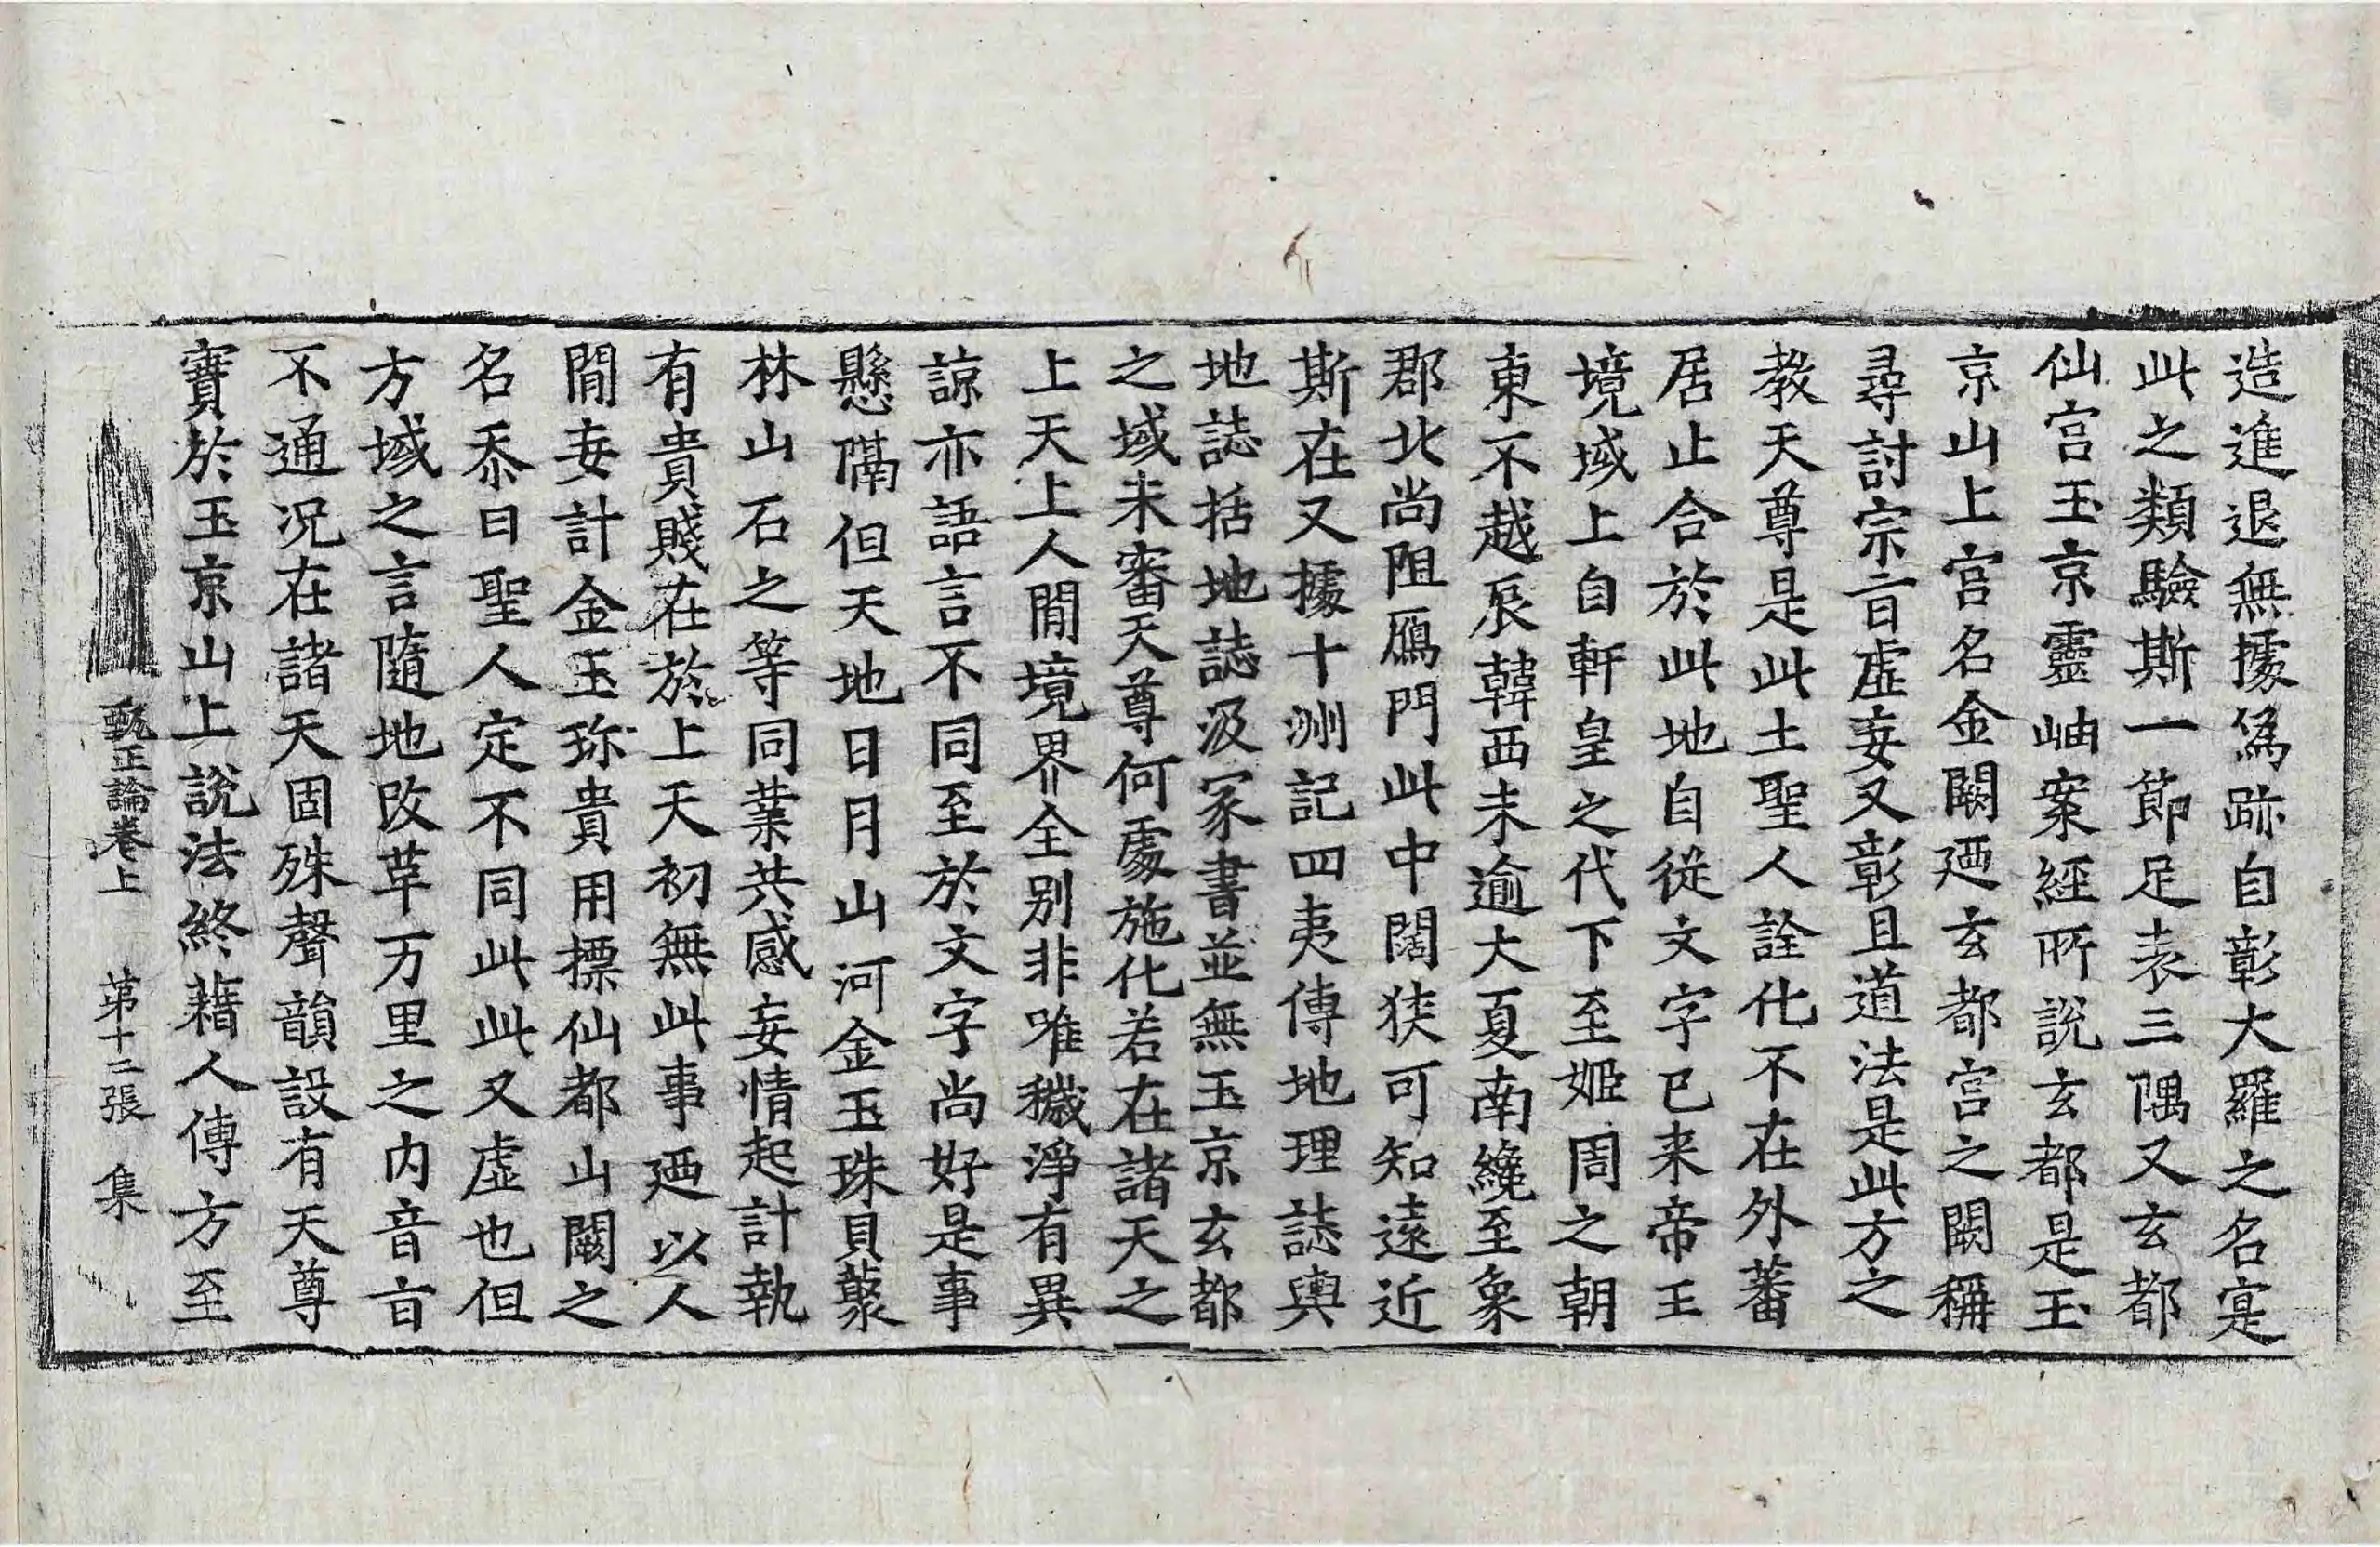 造進退無據爲跡自彰大羅之名寔
此之類驗斯一節足表三隅又玄都
仙宮玉京靈岫案經所說玄都是玉
京山上宮名金闕迺玄都宮之闕稱
尋討宗旨虛妄又彰且道法是此方之
教天尊是此土聖人詮化不在外蕃
居止合於此地自從文字已来帝王
境域上自軒皇之代下至姬周之朝
東不越辰韓西未逾大夏南纔至象
郡北尚阻鴈門此中闊狹可知遠近
斯在又據十洲記四夷傳地理誌輿
地誌括地誌汲冢書並無玉京玄都
之域未審天尊何處施化若在諸天之
上天上人閒境界全別非唯穢淨有異
諒亦語言不同至於文字尚好是事
懸隔但天地日月山河金玉珠貝蘂
林山石之等同業共感妄情起計執
有貴賤在於上天初無此事迺以人
閒妄計金玉珎貴用摽仙都山闕之
名忝曰聖人定不同此此又虛也但
方域之言隨地改草万里之內音旨
不通况在諸天固殊聲韻設有天尊
寶於玉京山上說法終藉人傳方至
甄正論卷上　第十二張　集